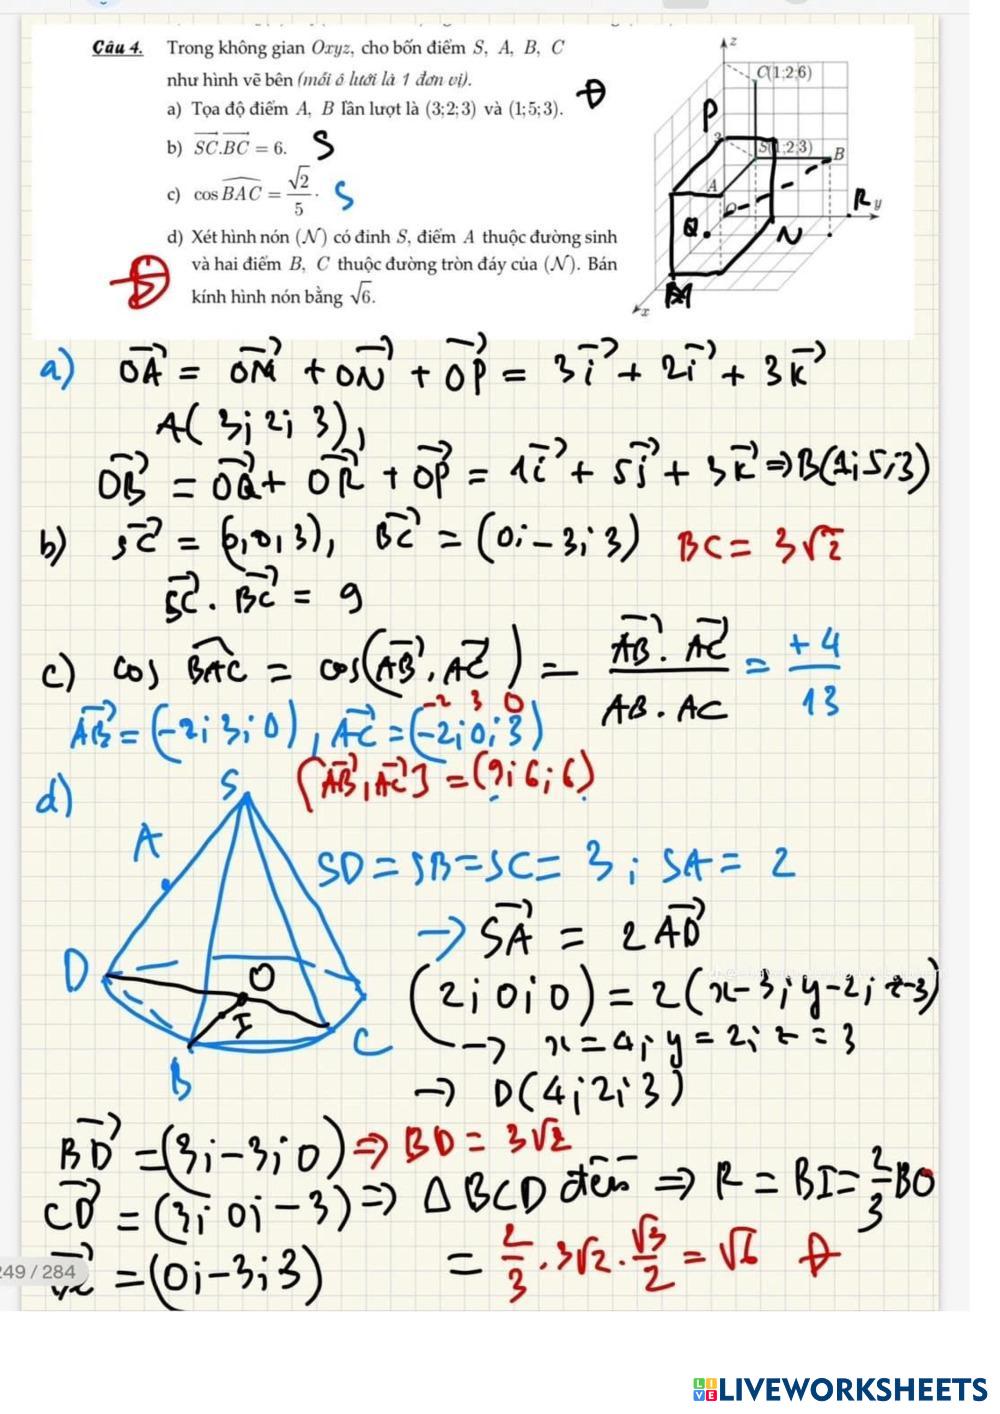 Câu 4. Trong không gian Oxyz, cho bốn điểm S, A, B, C
như hình vẽ bên (mỗi ô lưới là 1 đơn vị).
a) Tọa độ điểm A, B lần lượt là (3;2;3) và (1;5;3). Đ
b) SC⃗.BC⃗ = 6. S
c) cos BAC = √2/5. S
d) Xét hình nón (N) có đỉnh S, điểm A thuộc đường sinh
và hai điểm B, C thuộc đường tròn đáy của (N). Bán
kính hình nón bằng √6.
Đ
z
C(1;2;6)
P
3
S(1;2;3)
B
A
O
R y
Q
N
M
x
a) OA⃗ = OM⃗ + ON⃗ + OP⃗ = 3i⃗ + 2i⃗ + 3k⃗
A(3;2;3),
OB⃗ = OQ⃗ + OR⃗ + OP⃗ = 1i⃗ + 5j⃗ + 3k⃗ ⇒ B(1;5;3)
b) SC⃗ = (0,0,3), BC⃗ = (0;-3;3) BC = 3√2
SC⃗ . BC⃗ = 9
c) cos BAC = cos(AB⃗, AC⃗) = AB⃗ . AC⃗ / AB . AC = +4/13
AB⃗ = (-2;3;0), AC⃗ = (-2;0;3)
-2 3 0
[AB⃗, AC⃗] = (9;6;6)
d)
S
A
D
O
I
B
C
SD = SB = SC = 3; SA = 2
→ SA⃗ = 2AD⃗
(2;0;0) = 2(x-3; y-2; z-3)
→ x = 4; y = 2; z = 3
→ D(4;2;3)
BD⃗ = (3;-3;0) ⇒ BD = 3√2
CD⃗ = (3;0;-3) ⇒ Δ BCD đều ⇒ R = BI = 2/3 BO
= (0;-3;3) = 2/3 . 3√2 . √3/2 = √6 Đ
249 / 284
LIVEWORKSHEETS